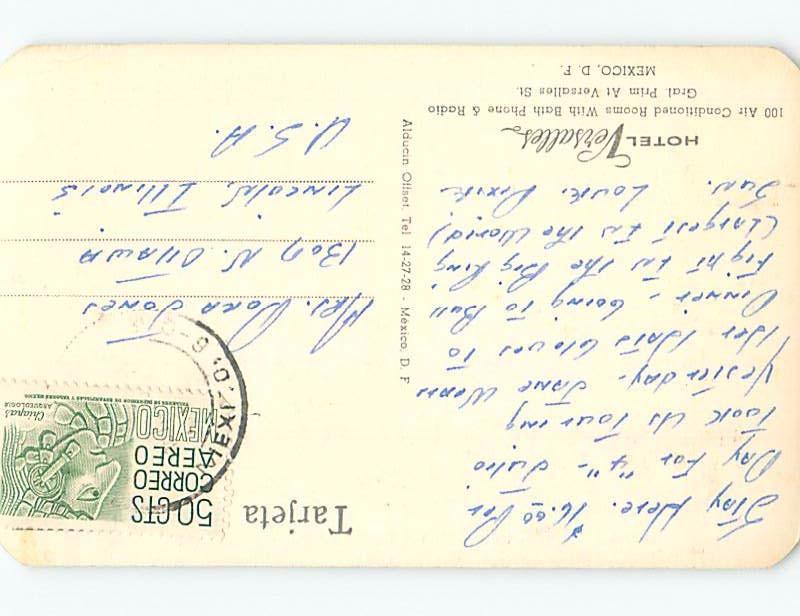 HOTEL Versalles
100 Air Conditioned Rooms With Bath Phone & Radio
Gral. Prim At Versalles St.
MEXICO, D. F.
Tarjeta
50 CTS
CORREO
AEREO
MEXICO
Chiapas
ARQUEOLOGIA
TALLERES DE IMPRESION DE ESTAMPILLAS Y VALORES MEXICO
MEXI
Stay Here. $16.00 Per
Day For "4" - Julio
Took Us Touring
Yesterday - Jane Wears
Her Hats Gloves To
Dinner - Going To Bull
Fight In The Big Ring
(Largest In The World)
Sun. Love.
Alducin Offset Tel 14-27-28 - México, D. F
Mrs. Dora Jones
N. Ottawa
Lincoln, Illinois
U.S.A.